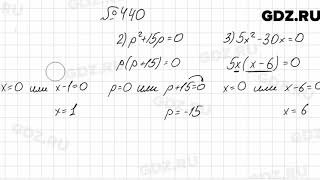 GDZ.RU
№440
2) p²+15p=0
3) 5x²-30x=0
p(p+15)=0
5x(x-6)=0
x=0 или x-1=0
p=0 или p+15=0
x=0 или x-6=0
x=1
p=-15
x=6